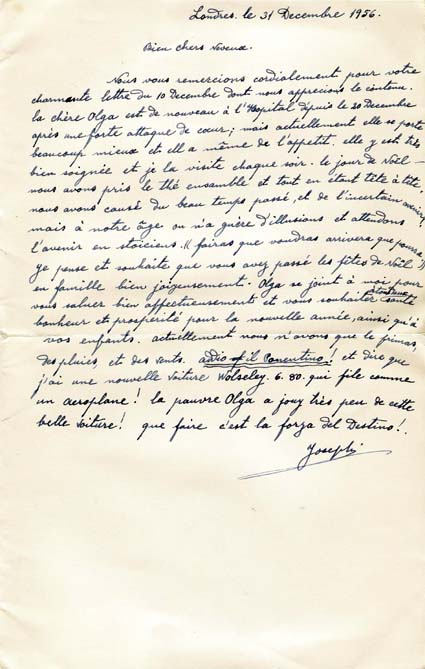 Londres. le 31 Decembre 1956.
Bien chers Neveux.
Nous vous remercions cordialement pour votre
charmante lettre du 10 Decembre dont nous apprecions le contenu.
la chère Olga est de nouveau à l'Hopital depuis le 20 Decembre
après une forte attaque de cœur; mais actuellement elle se porte
beaucoup mieux et ell a même de l'appetit. elle y est très
bien soignée et je la visite chaque soir. le jour de Noël
nous avons pris le thé ensamble et tout en etant tête à tête,
nous avons causé du beau temps passé, et de l'incertain avenir,
mais à notre âge on n'a guère d'illusions et attendons
l'avenir en stoiciens. (( fairas que voudras arrivera que pourra ))
je pense et souhaite que vous avez passé les fêtes de Noël
en famille bien joyeusement. Olga se joint à moi pour
vous saluer bien affectueusement et vous souhaiter santé
bonheur et prosperité pour la nouvelle année, ainsi qu'à
vos enfants. actuellement nous n'avons que le
des pluies, et des vents. adio il Ponentino! et dire que
j'ai une nouvelle voiture Wolseley. 6. 90. qui file comme
un aeroplane! la pauvre Olga a jouy très peu de cette
belle voiture! que faire c'est la forza del Destino!
Joseph